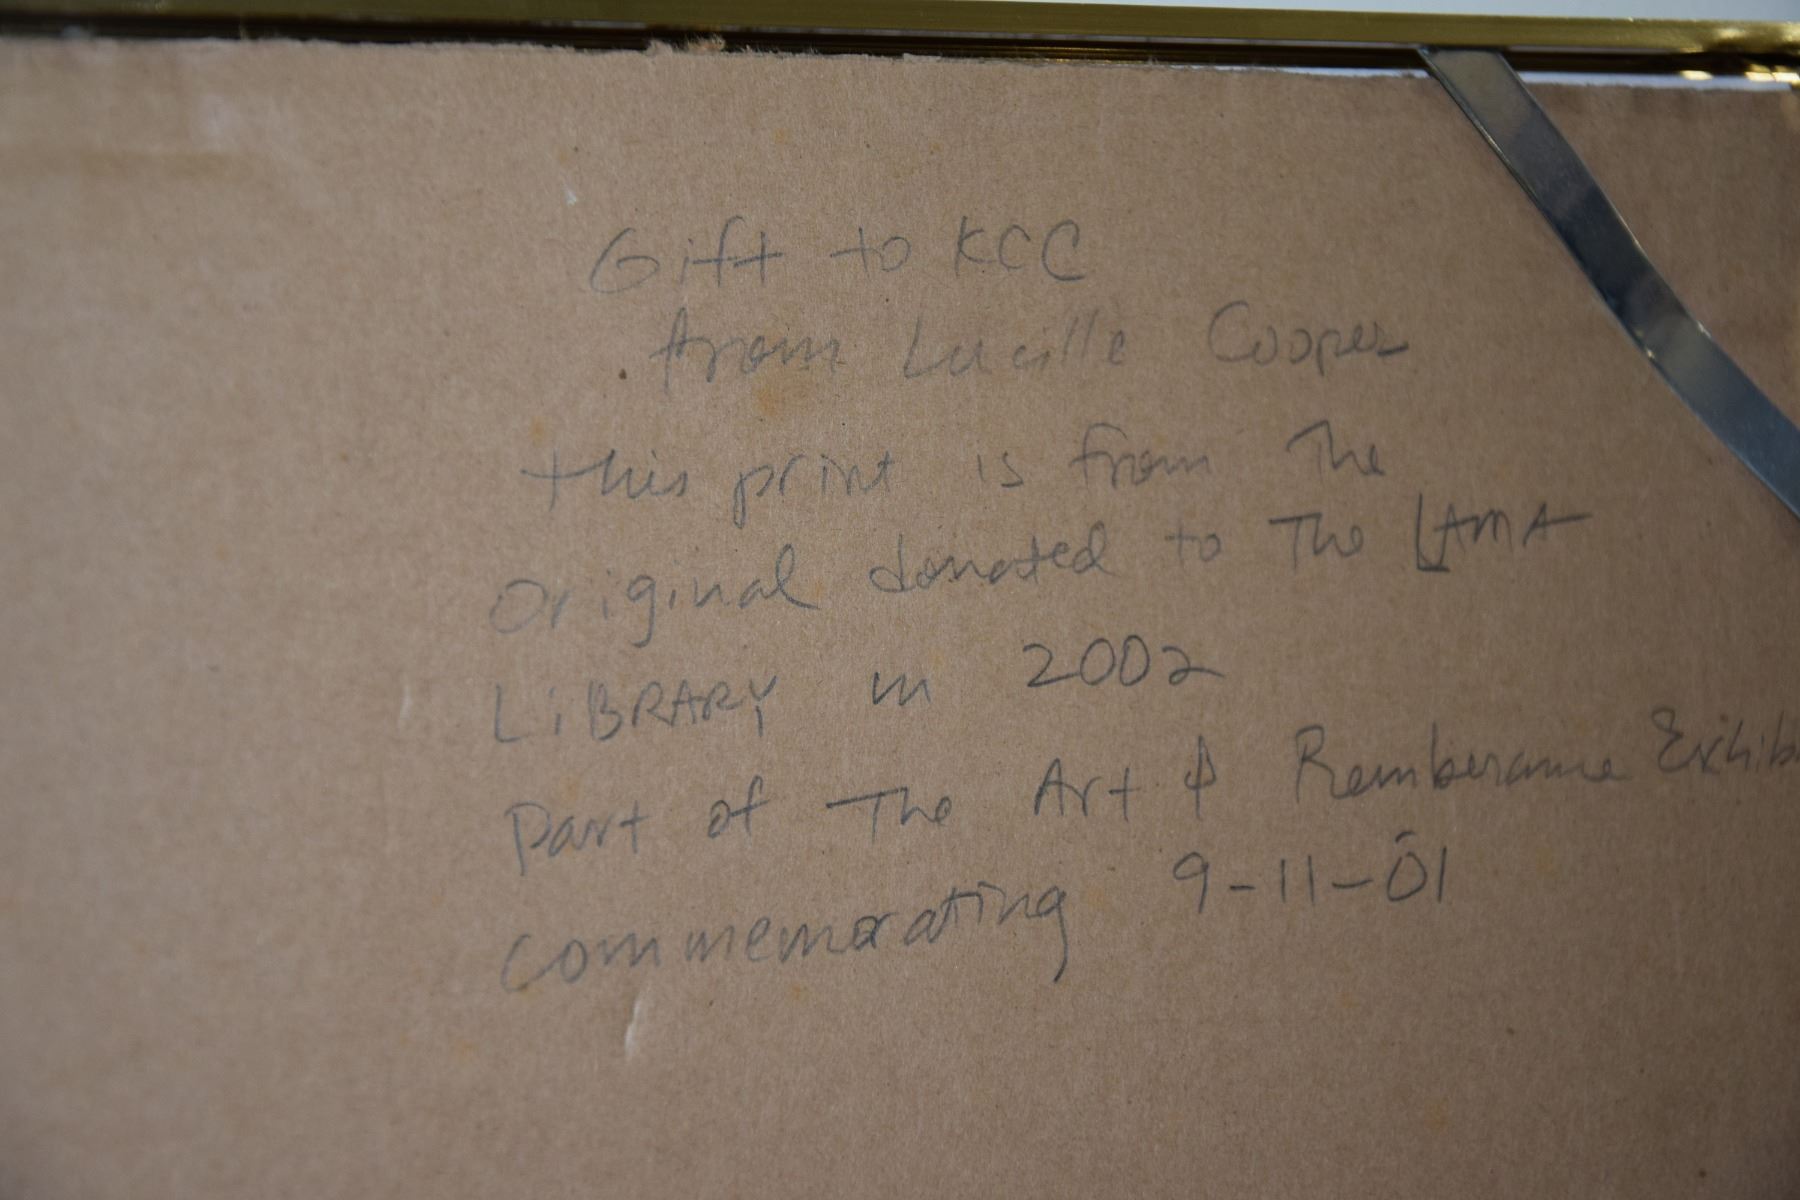 Gift to KCC
from Lucille Cooper
this print is from The
original donated to The LAMA
LiBRARY in 2002
Part of The Art & Remberance Exhib
commemorating 9-11-01